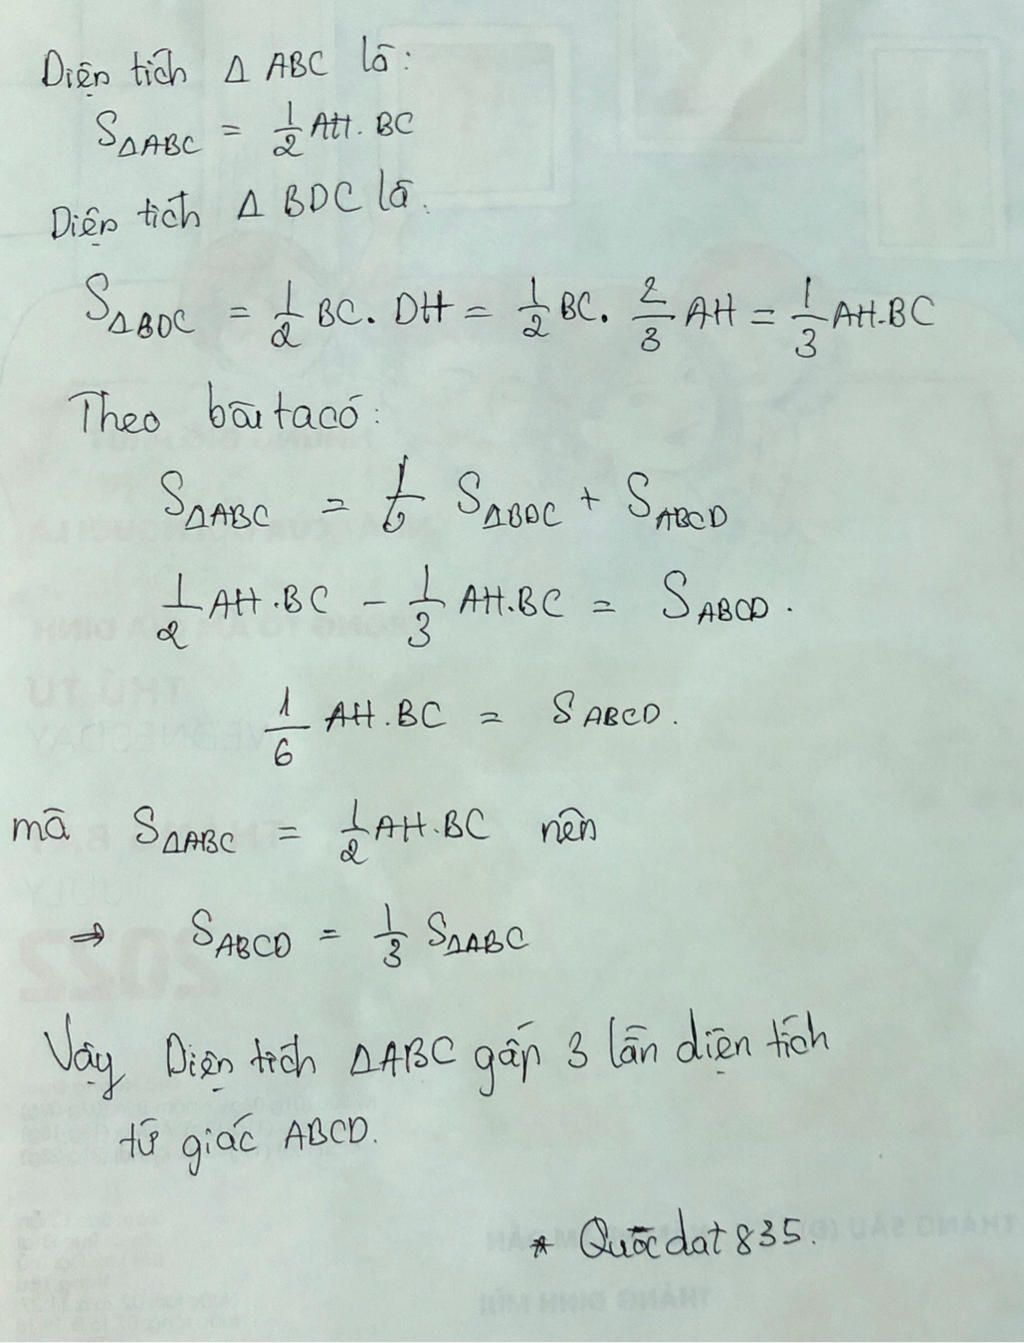 Diện tích Δ ABC là:
S ΔABC = 1/2 AH. BC
Diện tích Δ BDC là.
S ΔBDC = 1/2 BC. DH = 1/2 BC. 2/3 AH = 1/3 AH.BC
Theo bài ta có:
S ΔABC = S ΔBDC + S ABCD
1/2 AH.BC - 1/3 AH.BC = S ABCD.
1/6 AH.BC = S ABCD.
mà S ΔABC = 1/2 AH.BC nên
⇒ S ABCD = 1/3 S ΔABC
Vậy Diện tích ΔABC gấp 3 lần diện tích
tứ giác ABCD.
* Quốcdat835.
THỨ TƯ
WEDNESDAY
JULY
2022